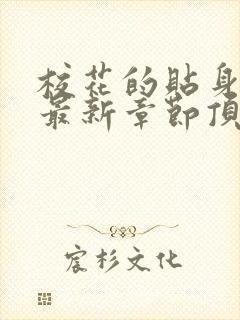 校花的貼身
最新章節頂
宸杉文化